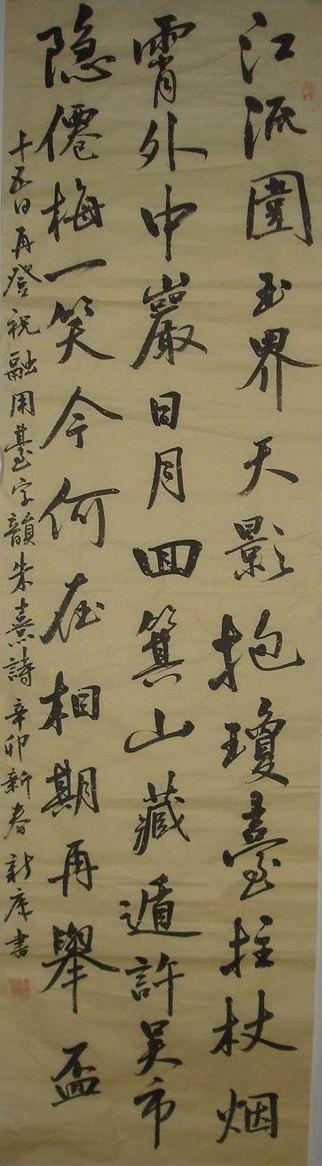 江流圍玉界天影抱瓊臺拄杖烟
霄外中巖日月回箕山藏遁許吴市
隐僊梅一笑今何在相期再舉盃
十五日再登祝融用臺字韻朱熹詩辛卯新春新庠書